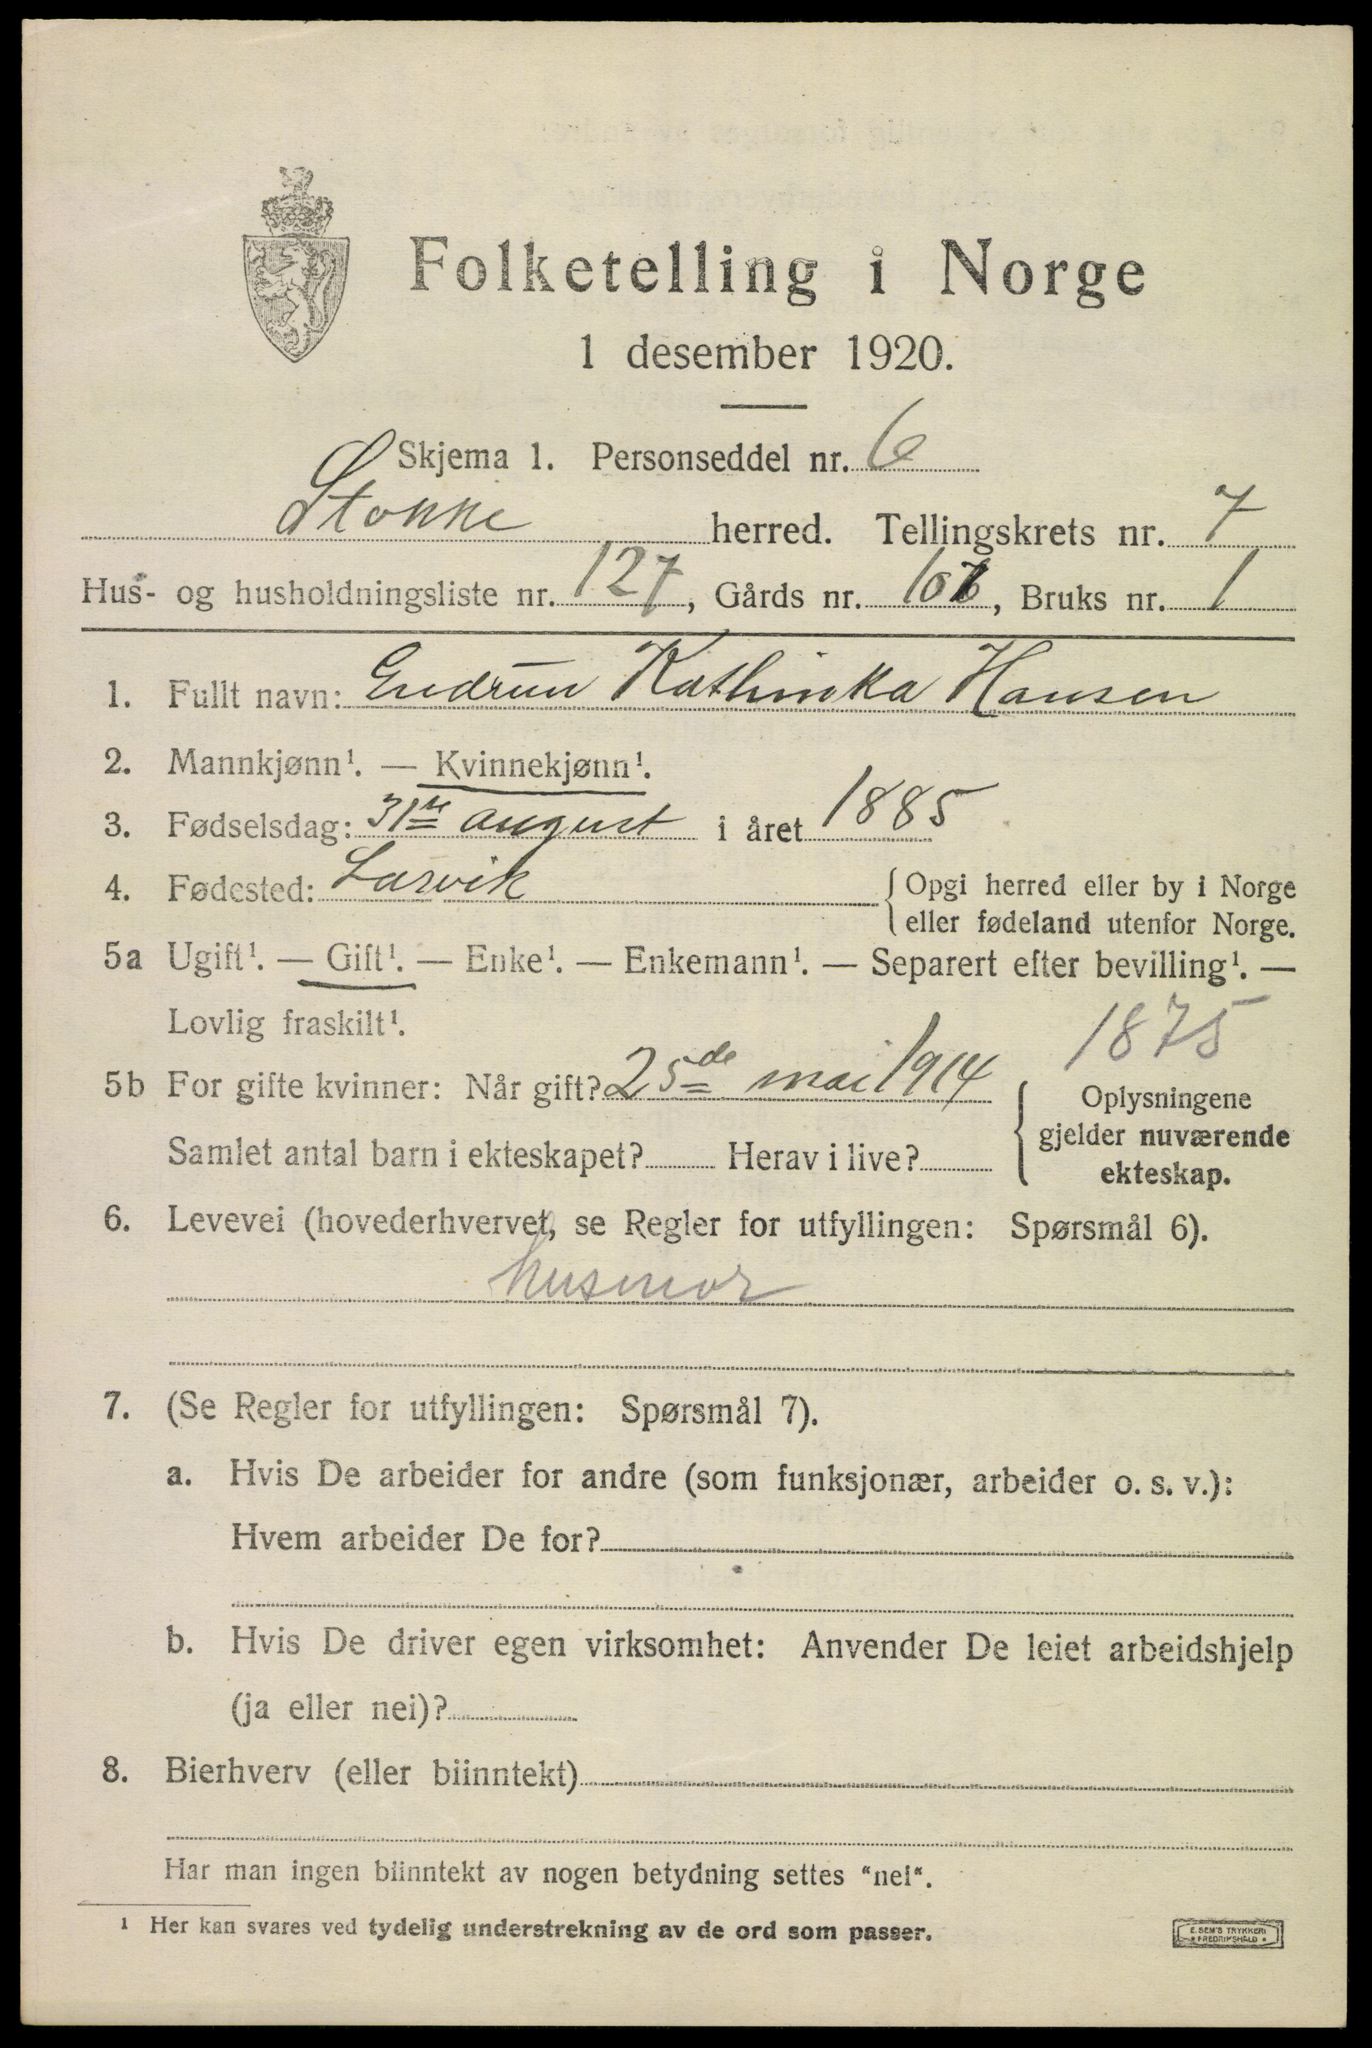 Folketelling i Norge
1 desember 1920.
Skjema 1. Personseddel nr. 6
Stokke herred. Tellingskrets nr. 7
Hus- og husholdningsliste nr. 127, Gårds nr. 107, Bruks nr. 1
1. Fullt navn: Gudrun Kathinka Hansen
2. Mannkjønn¹. — Kvinnekjønn¹.
3. Fødselsdag: 31te august i året 1885
4. Fødested: Larvik {Opgi herred eller by i Norge
eller fødeland utenfor Norge.
5a Ugift¹. — Gift¹. — Enke¹. — Enkemann¹. — Separert efter bevilling¹. —
Lovlig fraskilt¹.
1875
5b For gifte kvinner: Når gift? 25de mai 1914
Samlet antal barn i ekteskapet? Herav i live?
{Oplysningene
gjelder nuværende
ekteskap.
6. Levevei (hovederhvervet, se Regler for utfyllingen: Spørsmål 6).
husmor
7. (Se Regler for utfyllingen: Spørsmål 7).
a. Hvis De arbeider for andre (som funksjonær, arbeider o. s. v.):
Hvem arbeider De for?
b. Hvis De driver egen virksomhet: Anvender De leiet arbeidshjelp
(ja eller nei)?
8. Bierhverv (eller biinntekt)
Har man ingen biinntekt av nogen betydning settes "nei".
¹ Her kan svares ved tydelig understrekning av de ord som passer.
E. SEM'S TRYKKERI
* FREDRIKSHALD *